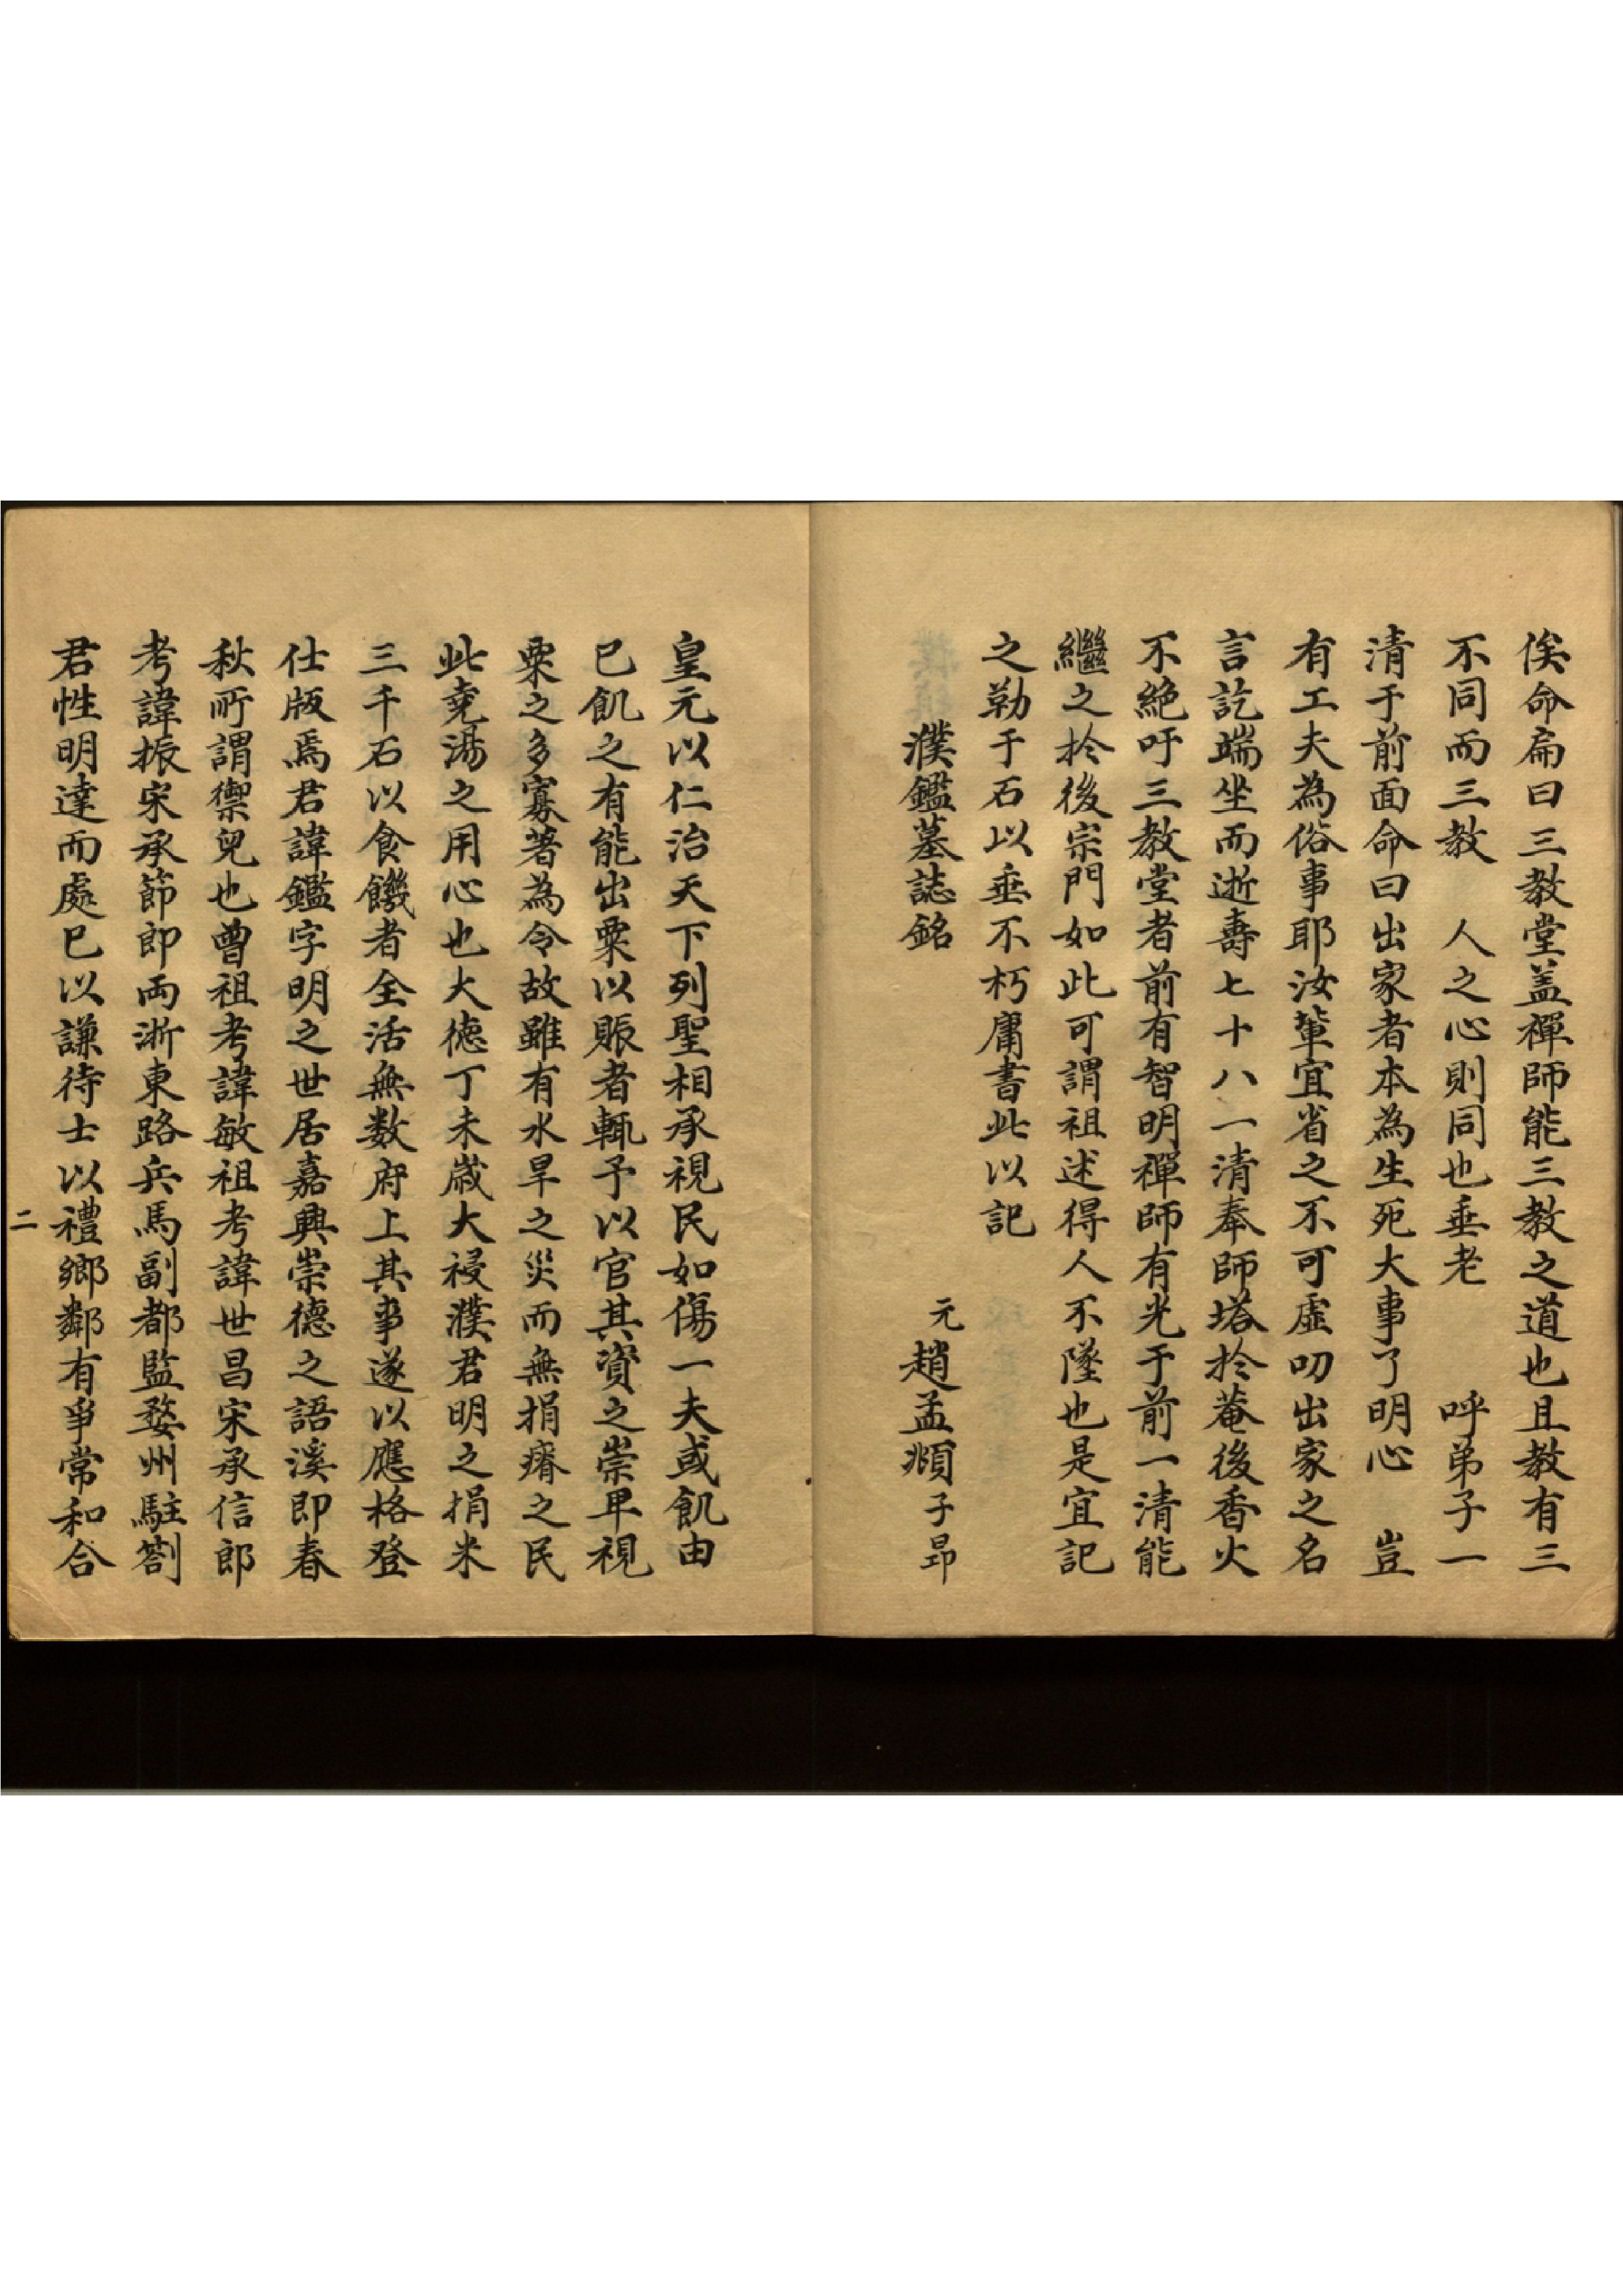 俟命扁曰三教堂盖禪師能三教之道也且教有三
不同而三教　人之心則同也垂老　　呼弟子一
清于前面命曰出家者本為生死大事了明心　豈
有工夫為俗事耶汝輩宜省之不可虛叨出家之名
言訖端坐而逝壽七十八一清奉師塔扵菴後香火
不絶吁三教堂者前有智明禪師有光于前一清能
繼之扵後宗門如此可謂祖述得人不墜也是宜記
之勒于石以垂不朽庸書此以記
濮鑑墓誌銘　　　元趙孟頫子昂
皇元以仁治天下列聖相承視民如傷一夫或飢由
已飢之有能出粟以賑者輒予以官其資之崇早視
粟之多寡著為令故雖有水旱之災而無捐瘠之民
此堯湯之用心也大德丁未歲大祲濮君明之捐米
三千石以食饑者全活無数府上其事遂以應格登
仕版焉君諱鑑字明之世居嘉興崇德之語溪即春
秋所謂禦兒也曾祖考諱敏祖考諱世昌宋承信郎
考諱振宋承節郎両浙東路兵馬副都監婺州駐劄
君性明達而處已以謙待士以禮鄉鄰有爭常和合
二